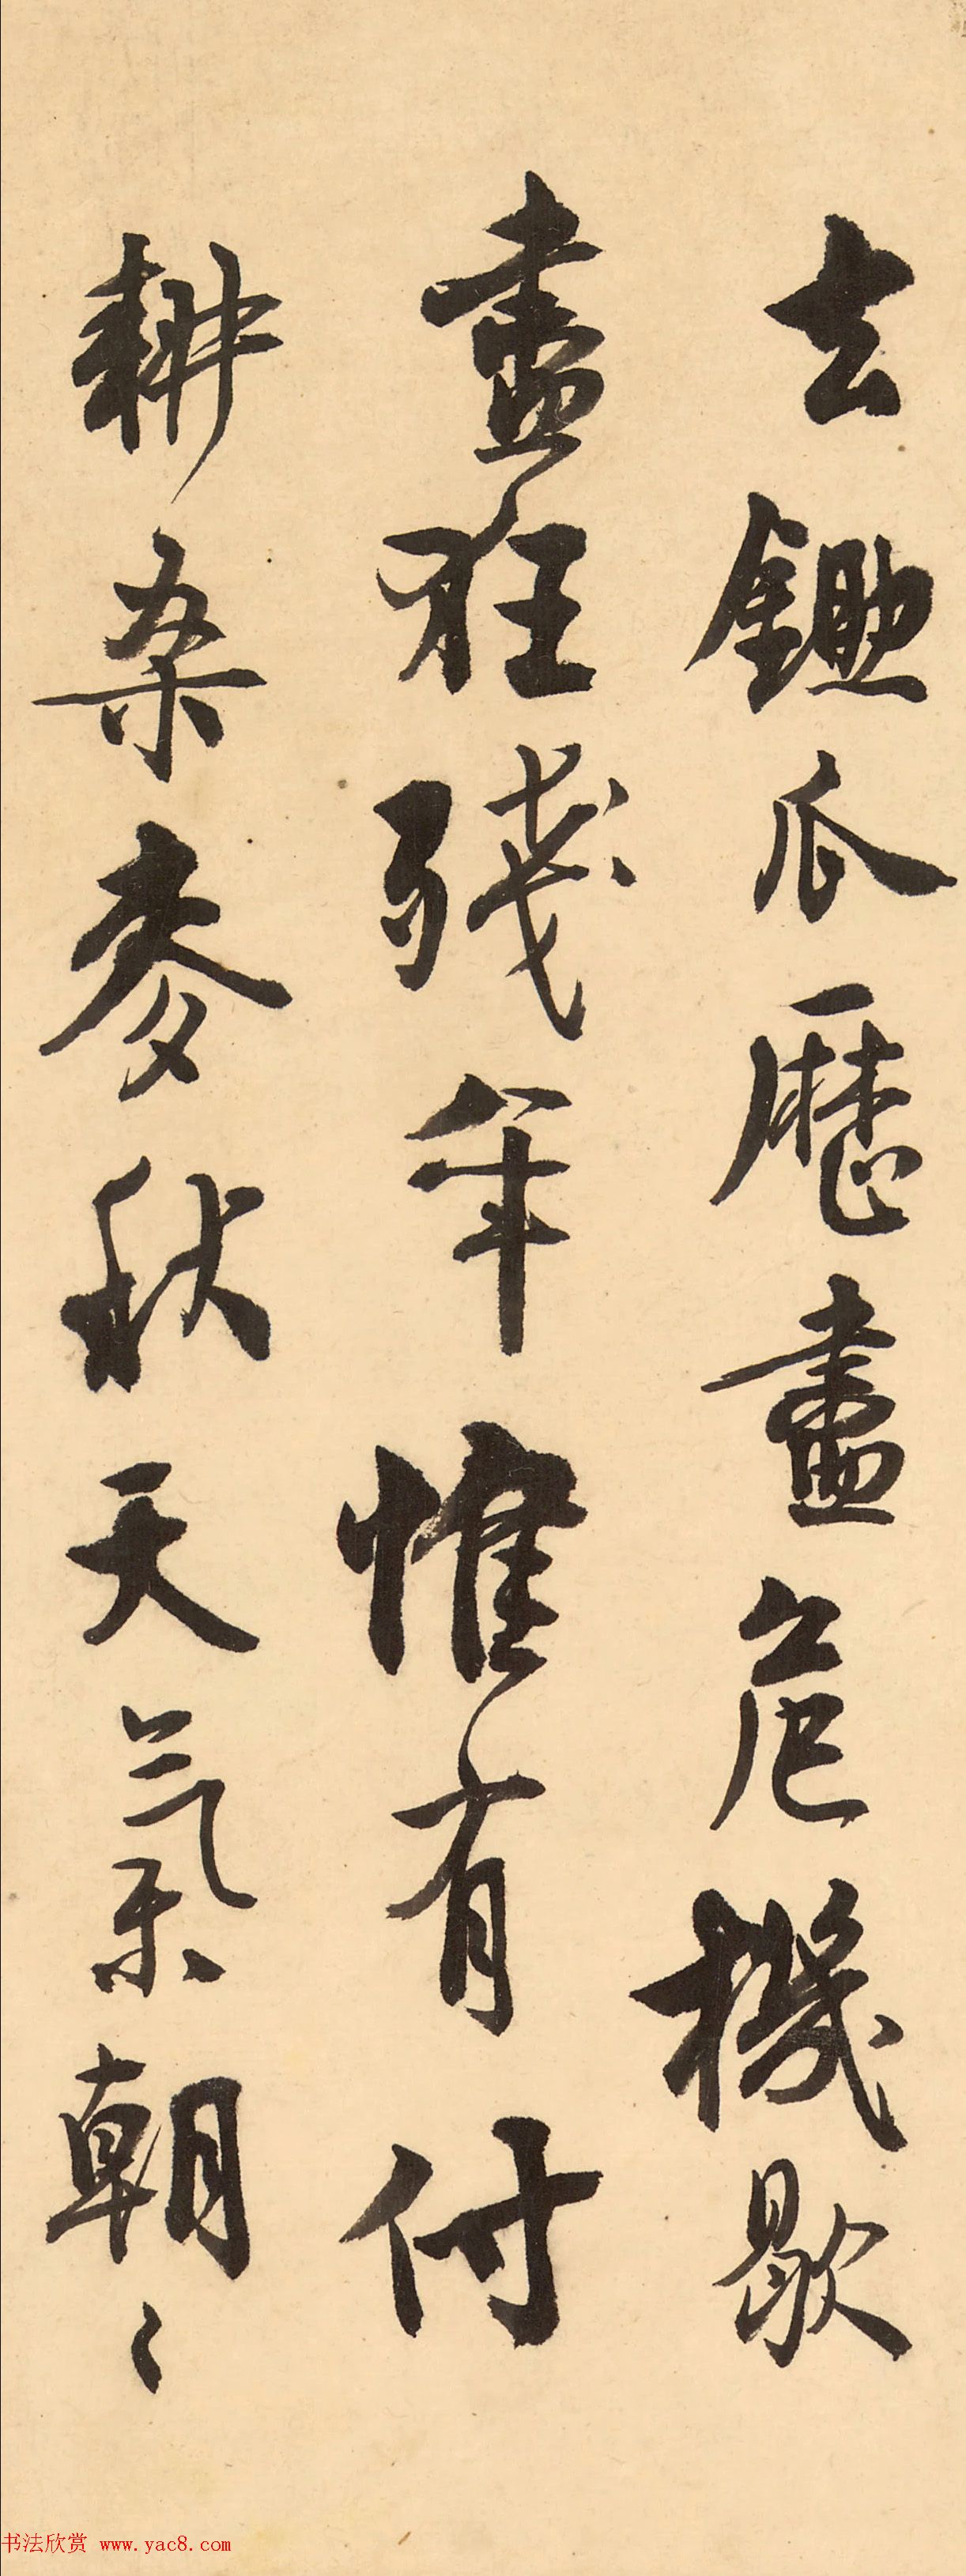 去鋤瓜歷盡危機歇
盡狂殘年惟有付
耕桑麥秋天氣朝〻
书法欣赏 www.yac8.com